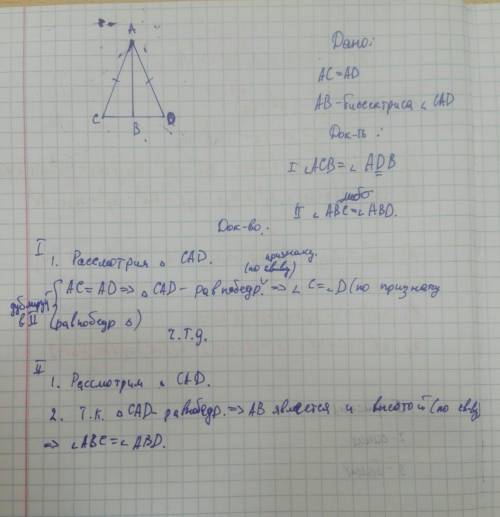 A
C
B
D
Дано:
AC = AD
AB - биссектриса ∠ CAD
Док-ть:
I ∠ACB = ∠ADB
либо
II ∠ABC = ∠ABD.
Док-во:
I
1. Рассмотрим △ CAD.
признаку
(по св-ву)
AC = AD => △ CAD - равнобедр. => ∠C = ∠D (по признаку
дублируй
в II
(равнобедр △)
Ч.Т.Д.
II
1. Рассмотрим △ CAD.
2. Т.К. △ CAD - равнобедр. => AB является и высотой (по св-ву)
=> ∠ABC = ∠ABD.